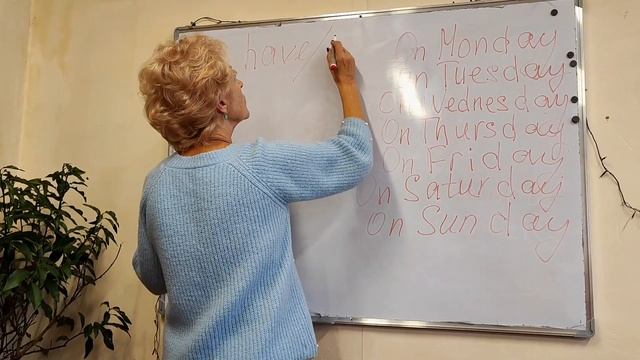 have/
On Monday
On Tuesday
On Wednesday
On Thursday
On Friday
On Saturday
On Sunday